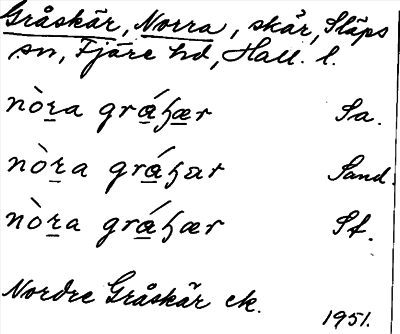 Gråskär, Norra, skär, Släps
sn, Fjäre hd, Hall. l.
nò̱ra grá̱ꜧær Sa.
nò̱ra grá̱ꜧar Sand.
nò̱ra grá̱ꜧær Sf.
Nordre Gråskär ek.
1951.